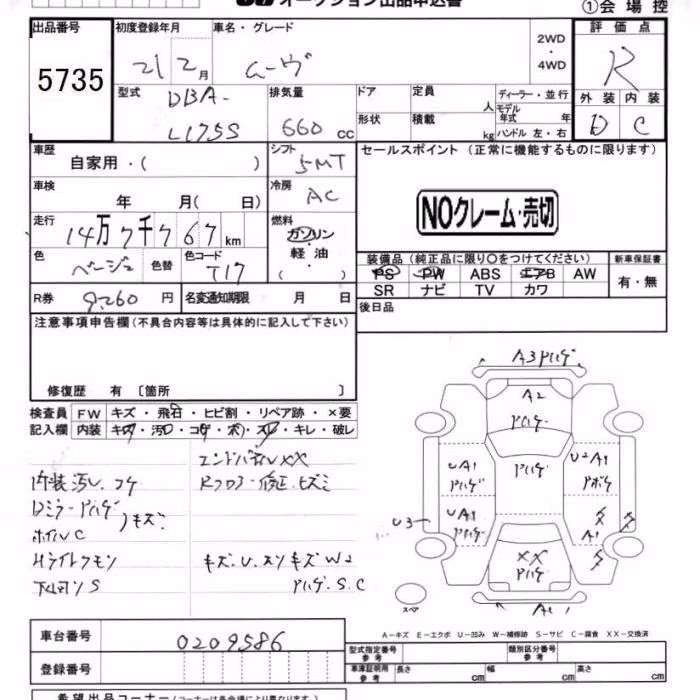 オークション出品申込書
①会場控
出品番号 初度登録年月 車名・グレード 評価点
5735 21年2月 ムーヴ 2WD・4WD R
型式 排気量 ドア 定員 人 ディーラー・並行 外装 内装
DBA-L175S 660cc 形状 積載 kg モデル年式 年 ハンドル 左・右 D C
車歴 シフト セールスポイント（正常に機能するものに限ります）
自家用・（ ） 5MT
車検 冷房
年 月（ 日） AC
NOクレーム・売切
走行 燃料
14万7千767km ガソリン・軽油・（ ）
色 色替 色コード
ベージュ T17
装備品（純正品に限り○をつけてください） 新車保証書
PS PW ABS エアB AW 有・無
SR ナビ TV カワ
R券 名変通知期限 月 日
9,260円
後日品
注意事項申告欄（不具合内容等は具体的に記入して下さい）
修復歴 有 〔箇所 〕
検査員 FW キズ・飛石・ヒビ割・リペア跡・×要
記入欄 内装 キズ・汚レ・コゲ・穴・スレ・キレ・破レ
エンドパネルXX
内装汚レ コゲ Rフロアー修正、ヒズミ
Dミラーアハゲ ノキズ
ホイルC
Hライトクモリ キズ・U・スリキズW2
下回リS アハゲ.S.C
A3アハゲ
A2
アハゲ
UA1 アハゲ
アハゲ
U2A1
UA1 アハゲ
U3
A1
XX
アハゲ
スペア
A-キズ E-エクボ U-凹み W-補修跡 S-サビ C-腐食 XX-交換済
車台番号 0209586
型式指定番号 参考 類別区分番号 参考
登録番号 車庫証明用 参考 長さ cm 幅 cm 高さ cm
希望出品コーナー（コーナーは各会場により異なります）